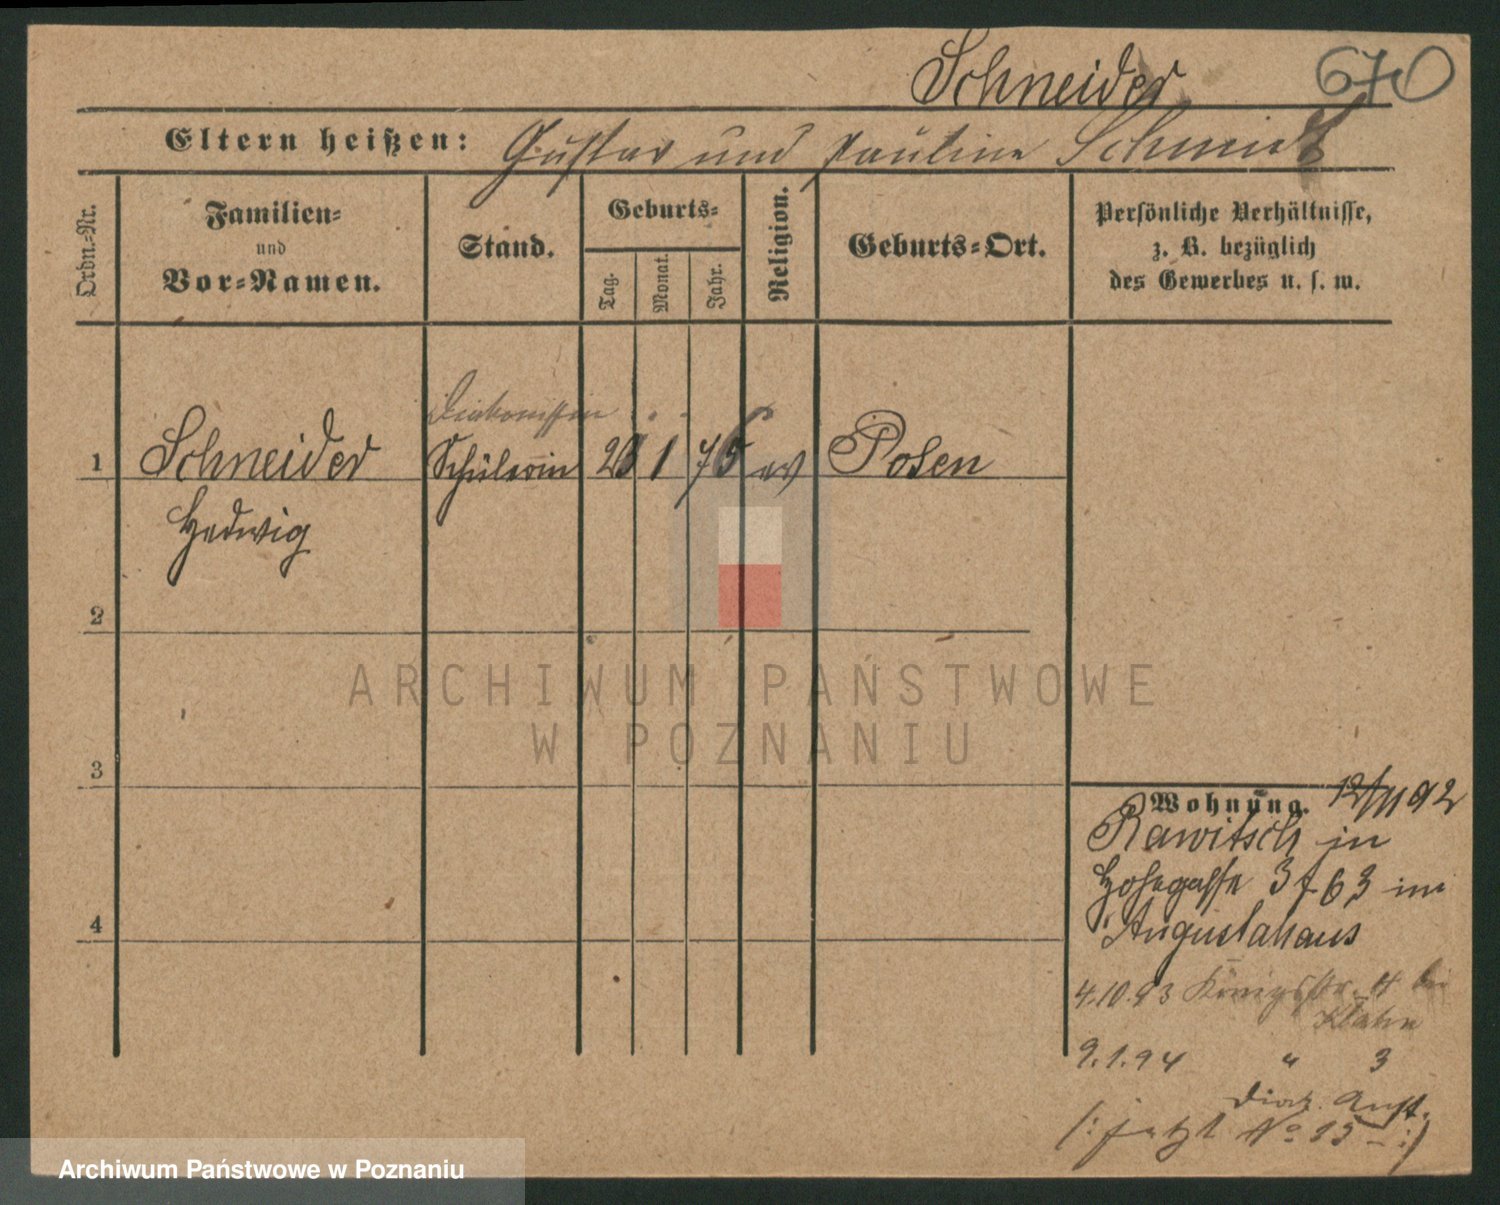 Schneider 670
Eltern heißen: Gustav und Pauline Schmidt
Ordn.-Nr.
Familien-
und
Vor-Namen.
Stand.
Geburts-
Tag.
Monat.
Jahr.
Religion.
Geburts-Ort.
Persönliche Verhältnisse,
z. B. bezüglich
des Gewerbes u. s. w.
Diakonissin
1 Schneider Schülerin 1 ev Posen
Hedwig
2
3
4
ARCHIWUM PAŃSTWOWE
W POZNANIU
Wohnung. 12/11 92
Rawitsch in
Hohegasse 3 63 im
Augustahaus
4.10.93 Königsstr. 4 bei
9.1.94 " 3
Diak. Anst.
(: jetzt No 15 - :)
Archiwum Państwowe w Poznaniu